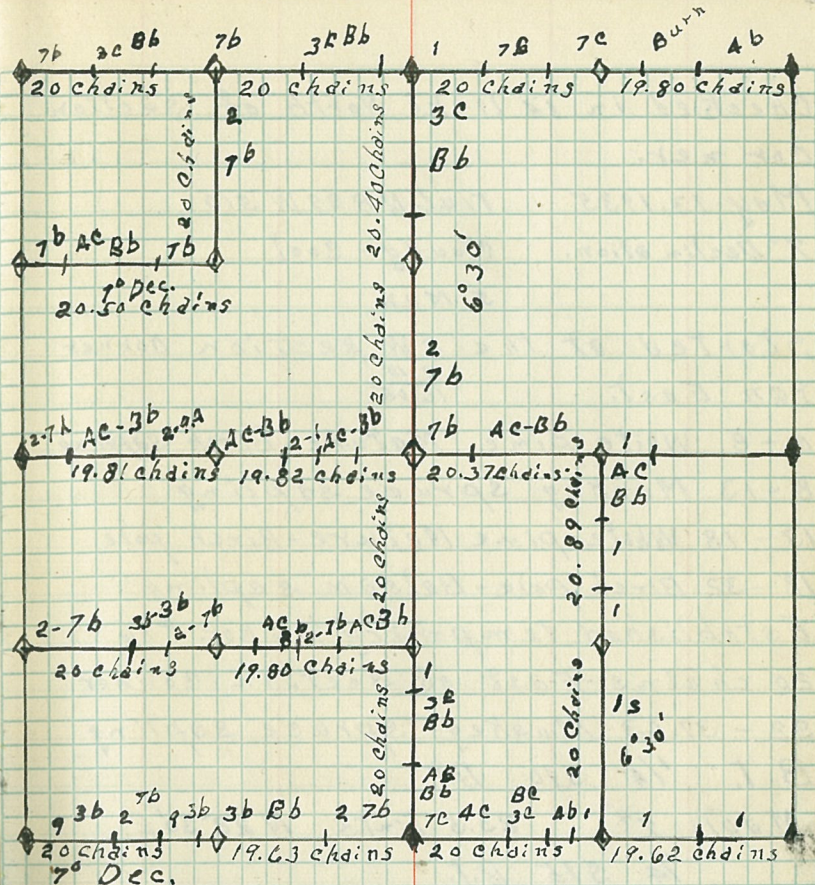 7b 3c Bb 7b 3c Bb 1 7B 7C Burn Ab
20 Chains 20 Chains 20 Chains 19.80 Chains
20 Chains
2
7b
20.40 Chains
3C
Bb
7b AC Bb 7b
7° Dec.
20.50 Chains
6°30'
20 Chains
2
7b
AC-Bb AC-Bb 7b AC-Bb 1
19.81 Chains 19.82 Chains 20.37 Chains
20 Chains
20.89 Chains
AC
Bb
1
1
2-7b 3b 2-7b AC Bb 2-7b AC Bb
20 Chains 19.80 Chains
1
Bb
20 Chains
20 Chains
1s
6°30'
Bb
9 3b 2 7b 9 3b 3b Bb 2 7b 7C 4C BC 3C Ab 1 1 1
20 Chains 19.63 Chains 20 Chains 19.62 Chains
7° Dec.